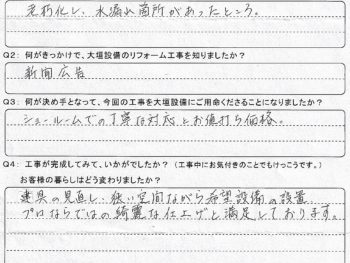 老朽化し、水漏れ箇所があったところ。
Q2: 何がきっかけで、大垣設備のリフォーム工事を知りましたか?
新聞広告
Q3: 何が決め手となって、今回の工事を大垣設備にご用命くださることになりましたか?
ショールームでの丁寧な対応とお値打ち価格。
Q4: 工事が完成してみて、いかがでしたか? (工事中にお気付きのことでもけっこうです。)
お客様の暮らしはどう変わりましたか?
建具の見直し、狭い空間ながら希望設備の設置、
プロならではの綺麗な仕上げと満足しております。